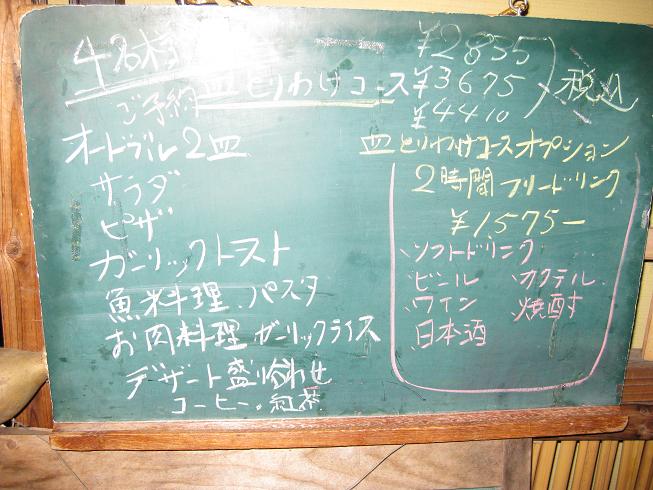 4名様
ご予約 皿とりわけコース
¥2835
¥3675
¥4410
税込
オードブル2皿
サラダ
ピザ
ガーリックトースト
魚料理、パスタ
お肉料理 ガーリックライス
デザート盛り合わせ
コーヒー。紅茶
皿とりわけコースオプション
2時間フリードリンク
¥1575−
ソフトドリンク
ビール カクテル
ワイン 焼酎
日本酒